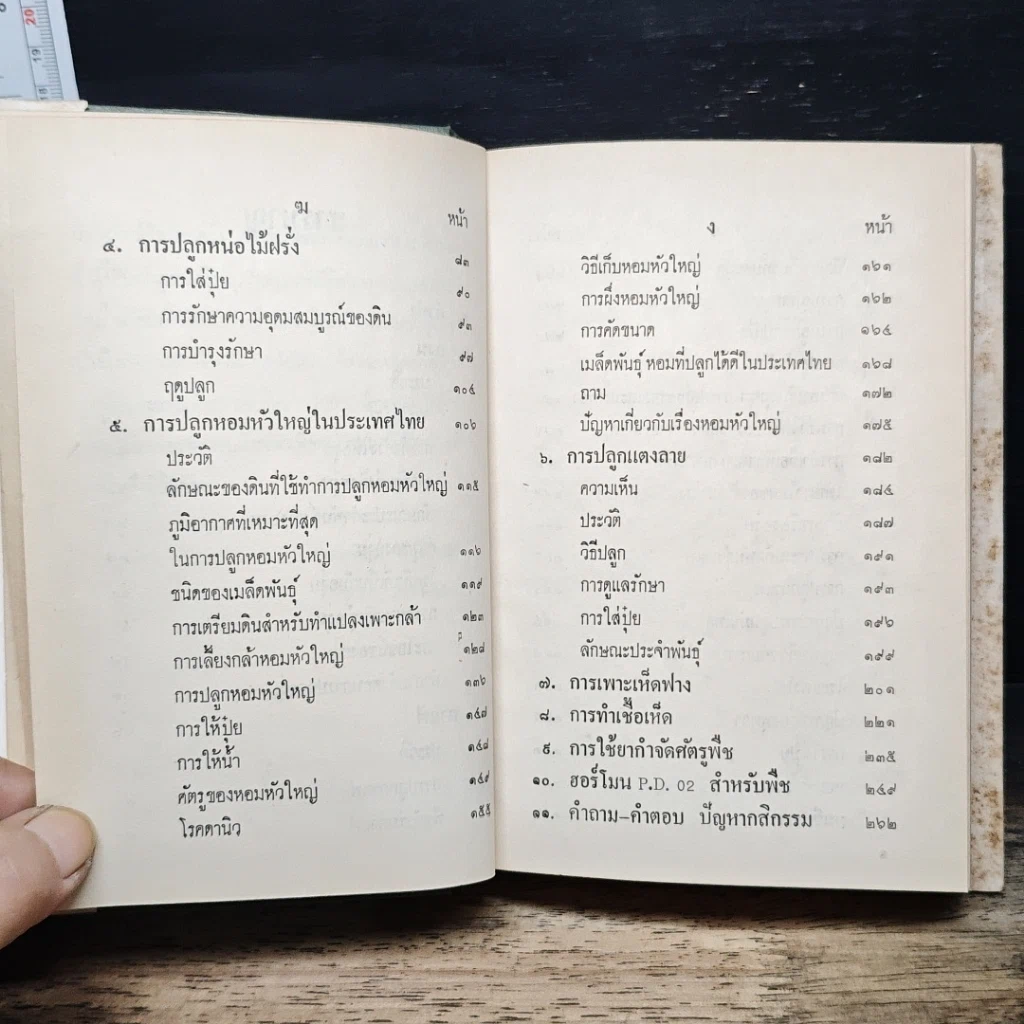 ฆ
หน้า
๔. การปลูกหน่อไม้ฝรั่ง ๘๓
การใส่ปุ๋ย ๙๐
การรักษาความอุดมสมบูรณ์ของดิน ๙๓
การบำรุงรักษา ๙๗
ฤดูปลูก ๑๐๔
๕. การปลูกหอมหัวใหญ่ในประเทศไทย ๑๐๖
ประวัติ
ลักษณะของดินที่ใช้ทำการปลูกหอมหัวใหญ่ ๑๑๕
ภูมิอากาศที่เหมาะที่สุด
ในการปลูกหอมหัวใหญ่ ๑๑๖
ชนิดของเมล็ดพันธุ์ ๑๑๙
การเตรียมดินสำหรับทำแปลงเพาะกล้า ๑๒๓
การเลี้ยงกล้าหอมหัวใหญ่ ๑๒๘
การปลูกหอมหัวใหญ่ ๑๓๖
การให้ปุ๋ย ๑๔๗
การให้น้ำ ๑๔๘
ศัตรูของหอมหัวใหญ่ ๑๔๙
โรคดานิว ๑๕๕
ง
หน้า
วิธีเก็บหอมหัวใหญ่ ๑๖๑
การผึ่งหอมหัวใหญ่ ๑๖๒
การคัดขนาด ๑๖๔
เมล็ดพันธุ์หอมที่ปลูกได้ดีในประเทศไทย ๑๖๘
ถาม ๑๗๒
ปัญหาเกี่ยวกับเรื่องหอมหัวใหญ่ ๑๗๕
๖. การปลูกแตงลาย ๑๘๒
ความเห็น ๑๘๔
ประวัติ ๑๘๗
วิธีปลูก ๑๙๑
การดูแลรักษา ๑๙๓
การใส่ปุ๋ย ๑๙๖
ลักษณะประจำพันธุ์ ๑๙๙
๗. การเพาะเห็ดฟาง ๒๐๑
๘. การทำเชื้อเห็ด ๒๒๑
๙. การใช้ยากำจัดศัตรูพืช ๒๓๕
๑๐. ฮอร์โมน P.D. 02 สำหรับพืช ๒๔๙
๑๑. คำถาม-คำตอบ ปัญหากสิกรรม ๒๖๒
20
19
18